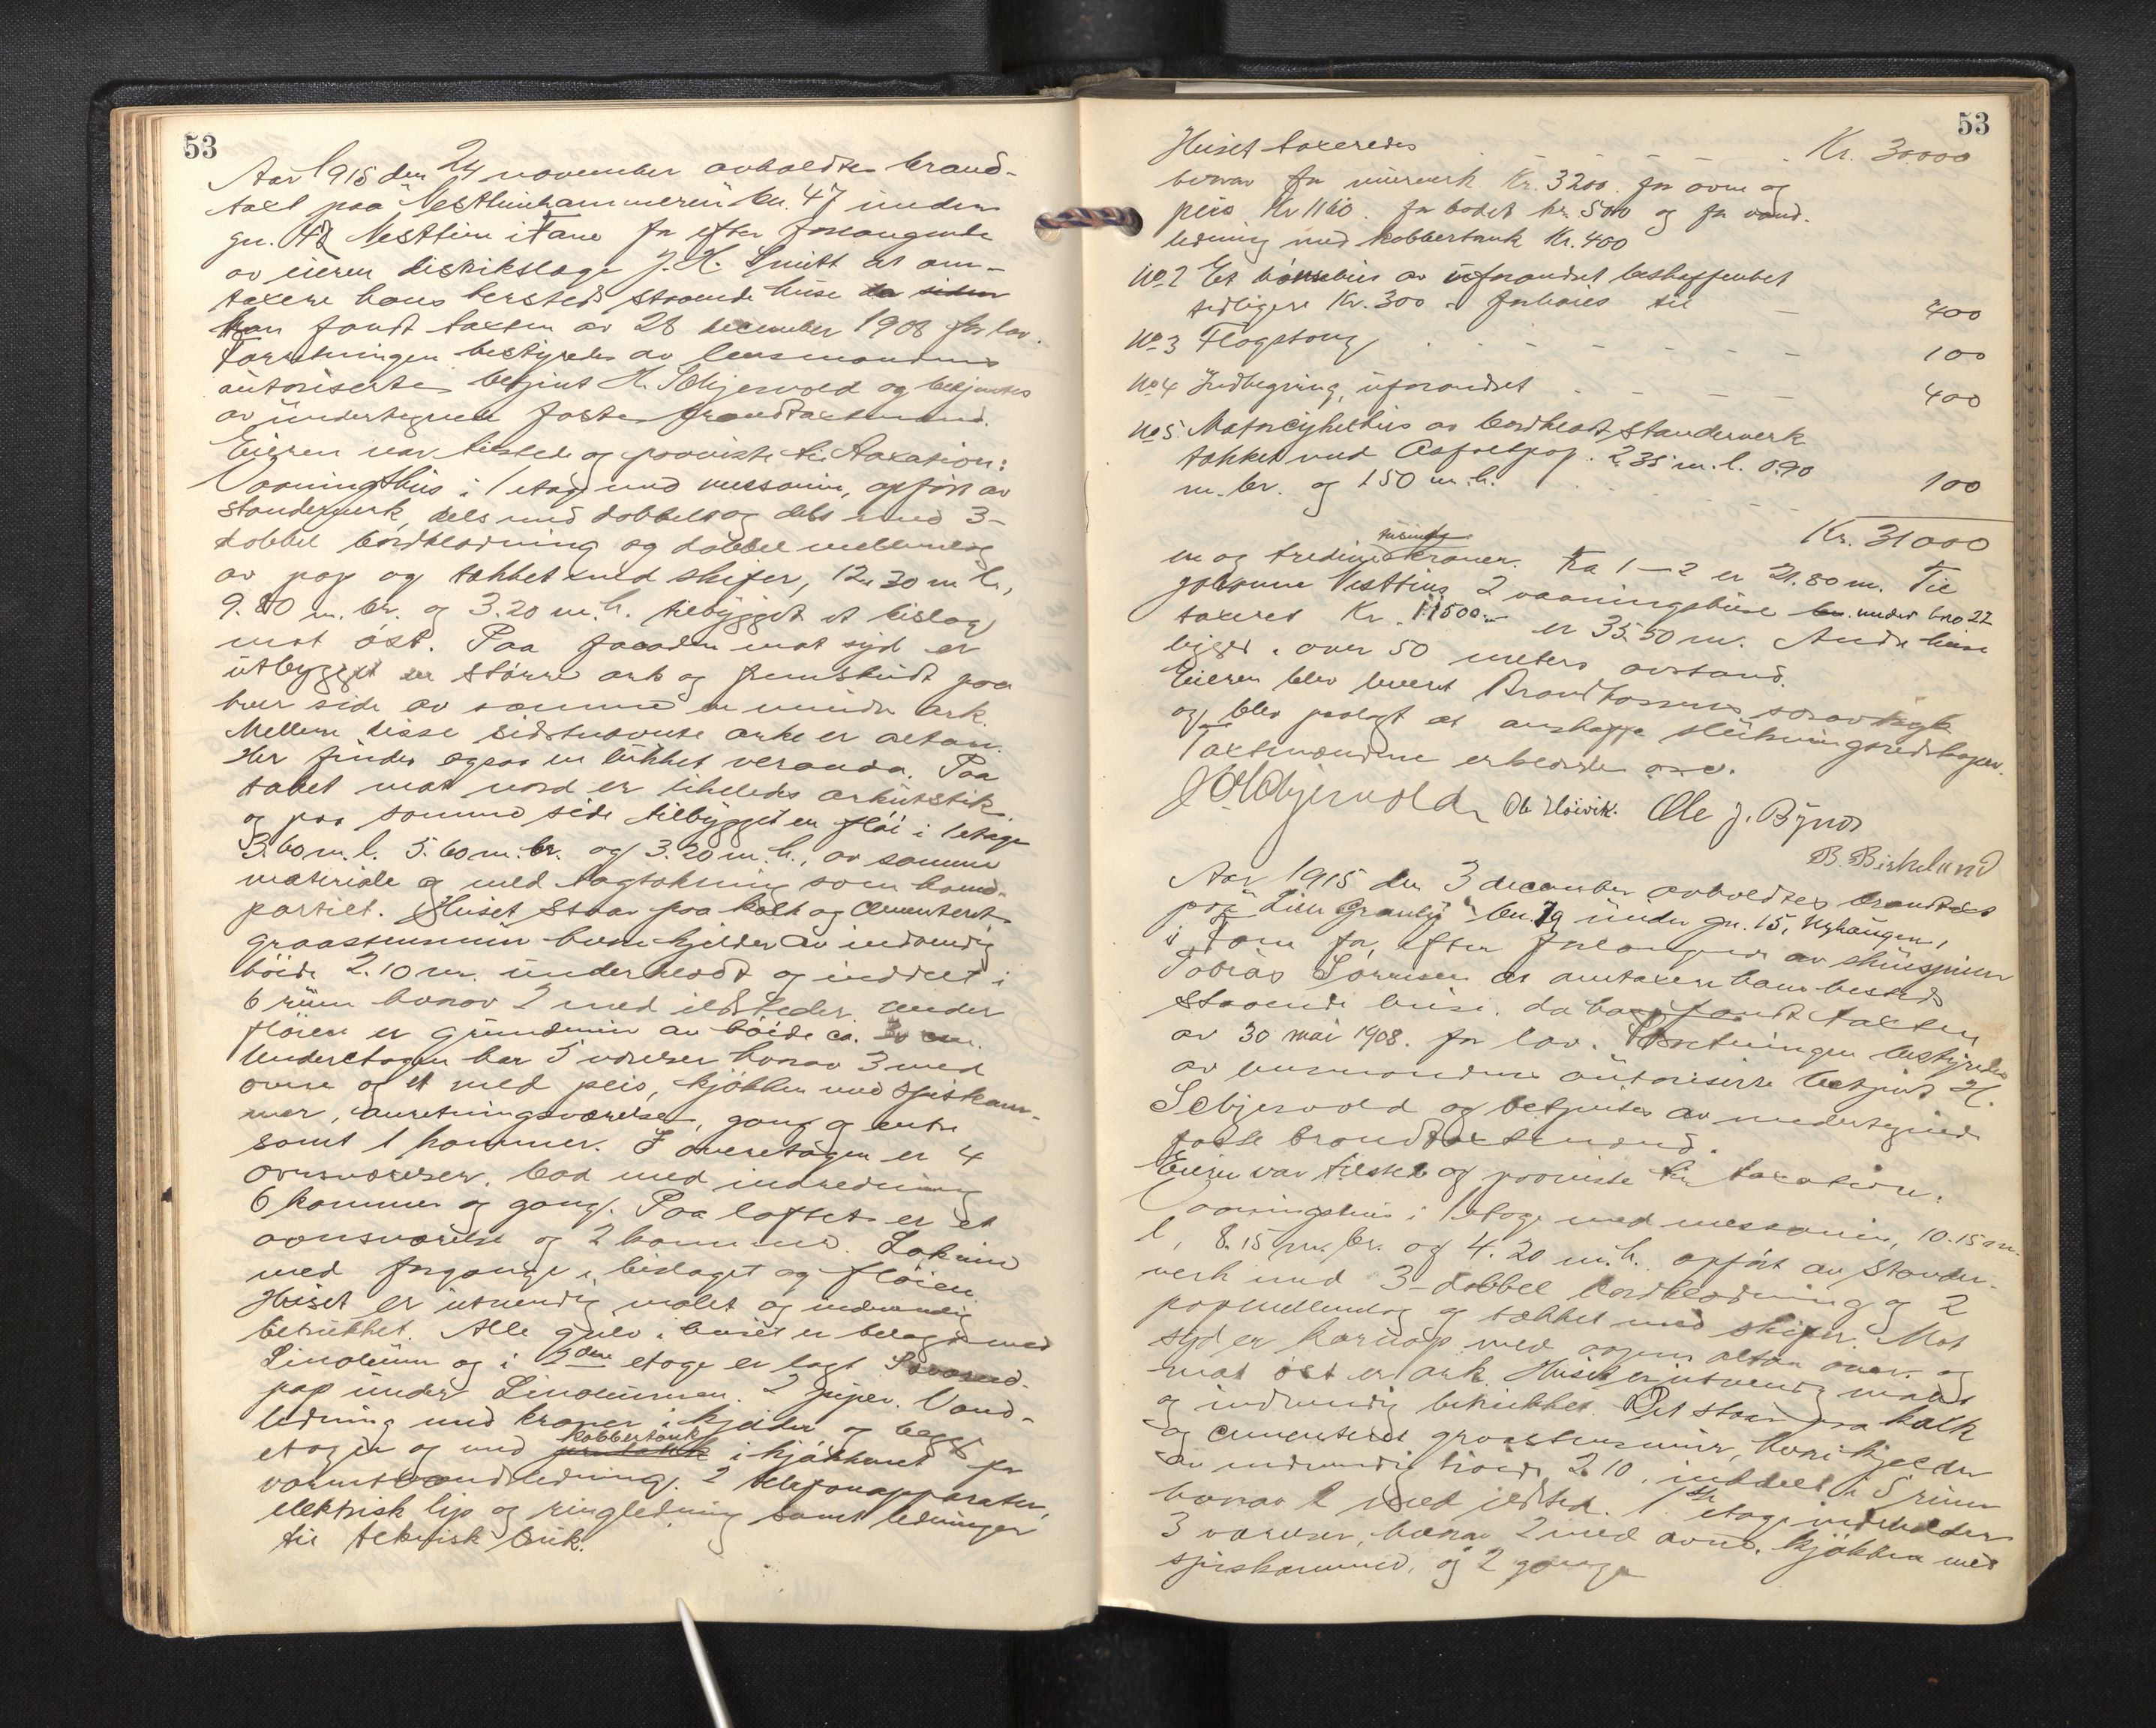 53
Aar 1915 den 24 november avholdtes brand-
taxt paa Nestunhammeren bn. 47 under
gn. 42 Nesttun i Fane for efter forlangende
av eieren distriktslæge J. H. Smitt at om-
taxere hans bersteds staaende huse da siden
han fandt taxten av 28 december 1908 for lav.
Forretningen bestyredes av lensmandens
autoriserte betjent H. Schjervold og betjentes
av undertegnede faste brandtaxtmænd.
Eieren var tilstede og paaviste til taxation:
Vaaningshus i 1 etage med messanin, opført av
standerverk, dels med dobbelt og dels med 3-
dobbel bordklædning og dobbel mellemlæg
av pap og tækket med skifer, 12.30 m l.,
9.80 m. br. og 3.20 m. h. tilbygget et bislag
mot øst. Paa facaden mot syd er
utbygget en større ark og fremskudt paa
hver side av samme en mindre ark.
Mellem disse sidstnævnte arke er altan.
Her findes ogsaa en lukket veranda. Paa
taket mot nord er likeledes arkutstik
og paa samme side tilbygget en fløi i 1 etage
3.60 m. l. 5.60 m. br. og 3.20 m. h., av samme
materiale og med tagtækning som hoved-
partiet. Huset staar paa kalk og cementeret
graastensmur hvori kjelder av indvendig
høide 2.10 m. under helt og inddelt i
6 rum hvorav 2 med ildsteder. Under
fløien er grundmur av høide ca.
Underetagen har 5 værelser hvorav 3 med
ovne og et med peis, kjøkken med spiskam-
mer, anretningsværelse, gang og entre
samt 1 kammer. I overetagen er 4
ovnsværelser, bad med indredning
6 kammer og gang. Paa loftet er et
ovnsværelse og 2 kammer. Lokum
med forgange i bislaget og fløien.
Huset er utvendig malet og indvendig
betrukket. Alle gulv i huset er belagt med
Linoleum og i 2den etage er lagt
pap under Linoleumen. 2 piper. Vand-
ledning med kraner i kjelder og begge
etager og med kobbertank i kjøkkenet for
varmtvandsledning. 2 telefonapparater,
elektrisk lys og ringledning samt ledninger
til teknisk bruk.
53
Huset taxeredes Kr. 30000
hvorav for murverk Kr. 3200. for ovne og
peis Kr 1160. for badet kr. 500 og for vand-
ledning med kobbertank Kr. 400
No 2 Et hønsehus av uforandret beskaffenhet
tidligere Kr. 300 forhøies til 400
No 3 Flagstang 100
No 4 Indhegning, uforandret 400
No 5 Motorcykelhus av bordklædt standerverk
tækket med Asfaltpap. 2.35 m. l. 0.90
m. br. og 1.50 m. h. 100
Kr. 31000
en og tredive tusinde kroner. Fra 1-2 er 21.80 m. Til
Johanne Nesttuns 2 vaaningshuse under bno 22
taxeret Kr. 11500.- er 35.50 m. Andre huse
ligger over 50 meters avstand.
Eieren blev leveret Brandkassens
og blev paalagt at anskaffe slukningsredskaper.
Taxtmændene erklærte o.s.v.
H Schjervold Ole Høivik. Ole J. Byrd
B. Birkeland
Aar 1915 den 3 december avholdtes brandtaxt
paa "Lien Granly" bn. 79 under gn. 15, Nyhaugen,
i Fane for efter forlangende av skuespiller
Tobias Sørensen at omtaxere hans bersteds
staaende huse, da han fandt taxten
av 30 mai 1908. for lav. Forretningen bestyredes
av lensmandens autoriserte betjent H.
Schjervold og betjentes av undertegnede
faste brandtaxtmænd.
Eieren var tilstede og paaviste til taxation.
Vaaningshus i 1 etage med messanin, 10.15 m.
l, 8.15 m. br. og 4.20 m. h. opført av stander-
verk med 3-dobbel bordklædning og 2
papmellemlag og tækket med skifer. Mot
syd er karnap med aapen altan over og
mot øst er ark. Huset er utvendig malet
og indvendig betrukket. Det staar paa kalk
og cementeret graastensmur, hvori kjelder
av indvendig høide 2.10, inddelt i 5 rum
hvorav 1 med ildsted. 1ste etage indeholder
3 værelser, hvorav 2 med ovne, kjøkken med
spiskammer, og 2 gange